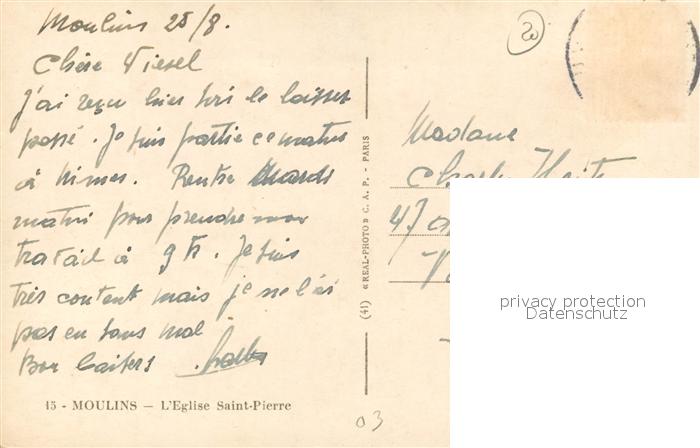 Moulins 25/8.
Chère
J'ai reçu hier soir le laisser
passé. Je suis partie ce matin
à Nimes. Rentre Mardi
matin pour prendre mon
travail à 9 h. Je suis
très content mais je ne l'ai
pas en sans mal
Bon baisers
15 - MOULINS — L'Eglise Saint-Pierre
(41) «REAL-PHOTO» C. A. P. - PARIS
20
Madame
47
03
privacy protection
Datenschutz